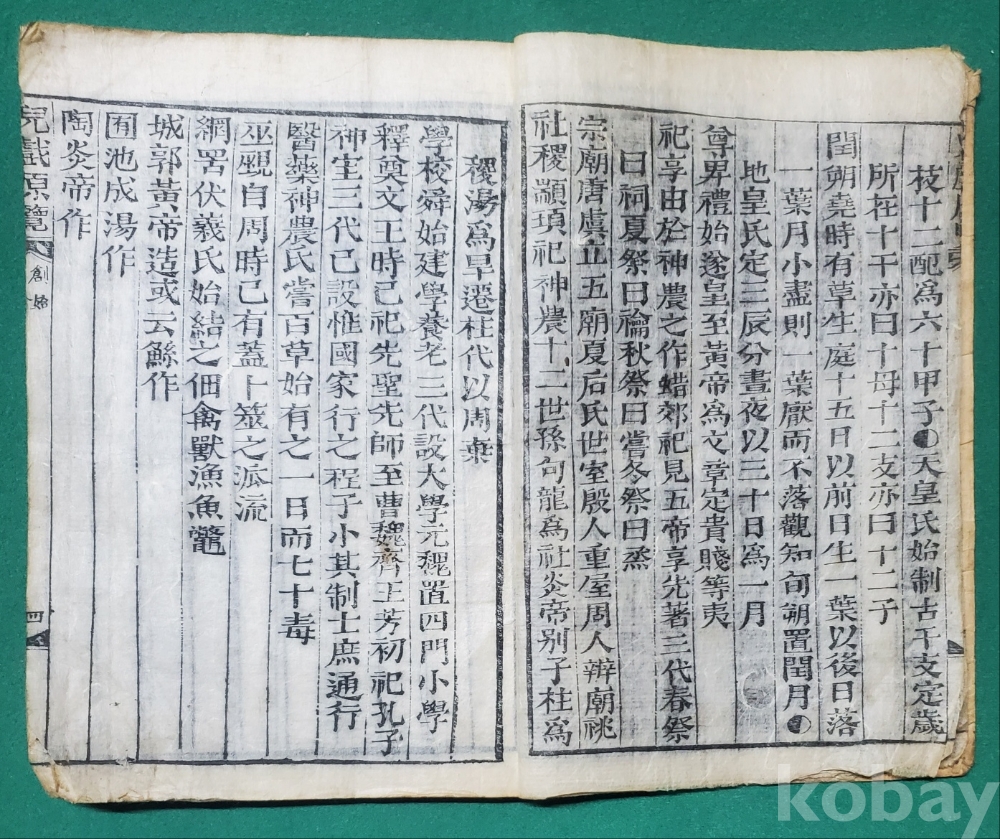 枝十二配爲六十甲子●天皇氏始制古干支定歲
所在十干亦曰十母十二支亦曰十二子
閏朔堯時有草生庭十五日以前日生一葉以後日落
一葉月小盡則一葉厭而不落觀知旬朔置閏月●
地皇氏定三辰分晝夜以三十日爲一月
尊卑禮始遂皇至黃帝爲文章定貴賤等夷
祀享由於神農之作蜡郊祀見五帝享先著三代春祭
曰祠夏祭曰禴秋祭曰嘗冬祭曰烝
宗廟唐虞立五廟夏后氏世室殷人重屋周人辨廟祧
社稷顓頊祀神農十二世孫句龍爲社炎帝別子柱爲
稷湯爲旱遷柱代以周棄
學校舜始建學養老三代設大學元魏置四門小學
釋奠文王時已祀先聖先師至曹魏齊王芳初祀孔子
神主三代已設惟國家行之程子小其制士庶通行
醫藥神農氏嘗百草始有之一日而七十毒
巫覡自周時已有蓋卜筮之派流
網罟伏羲氏始結之佃禽獸漁魚鼈
城郭黃帝造或云鯀作
囿池成湯作
陶炎帝作
兒戲原覽 創始 四
kobay